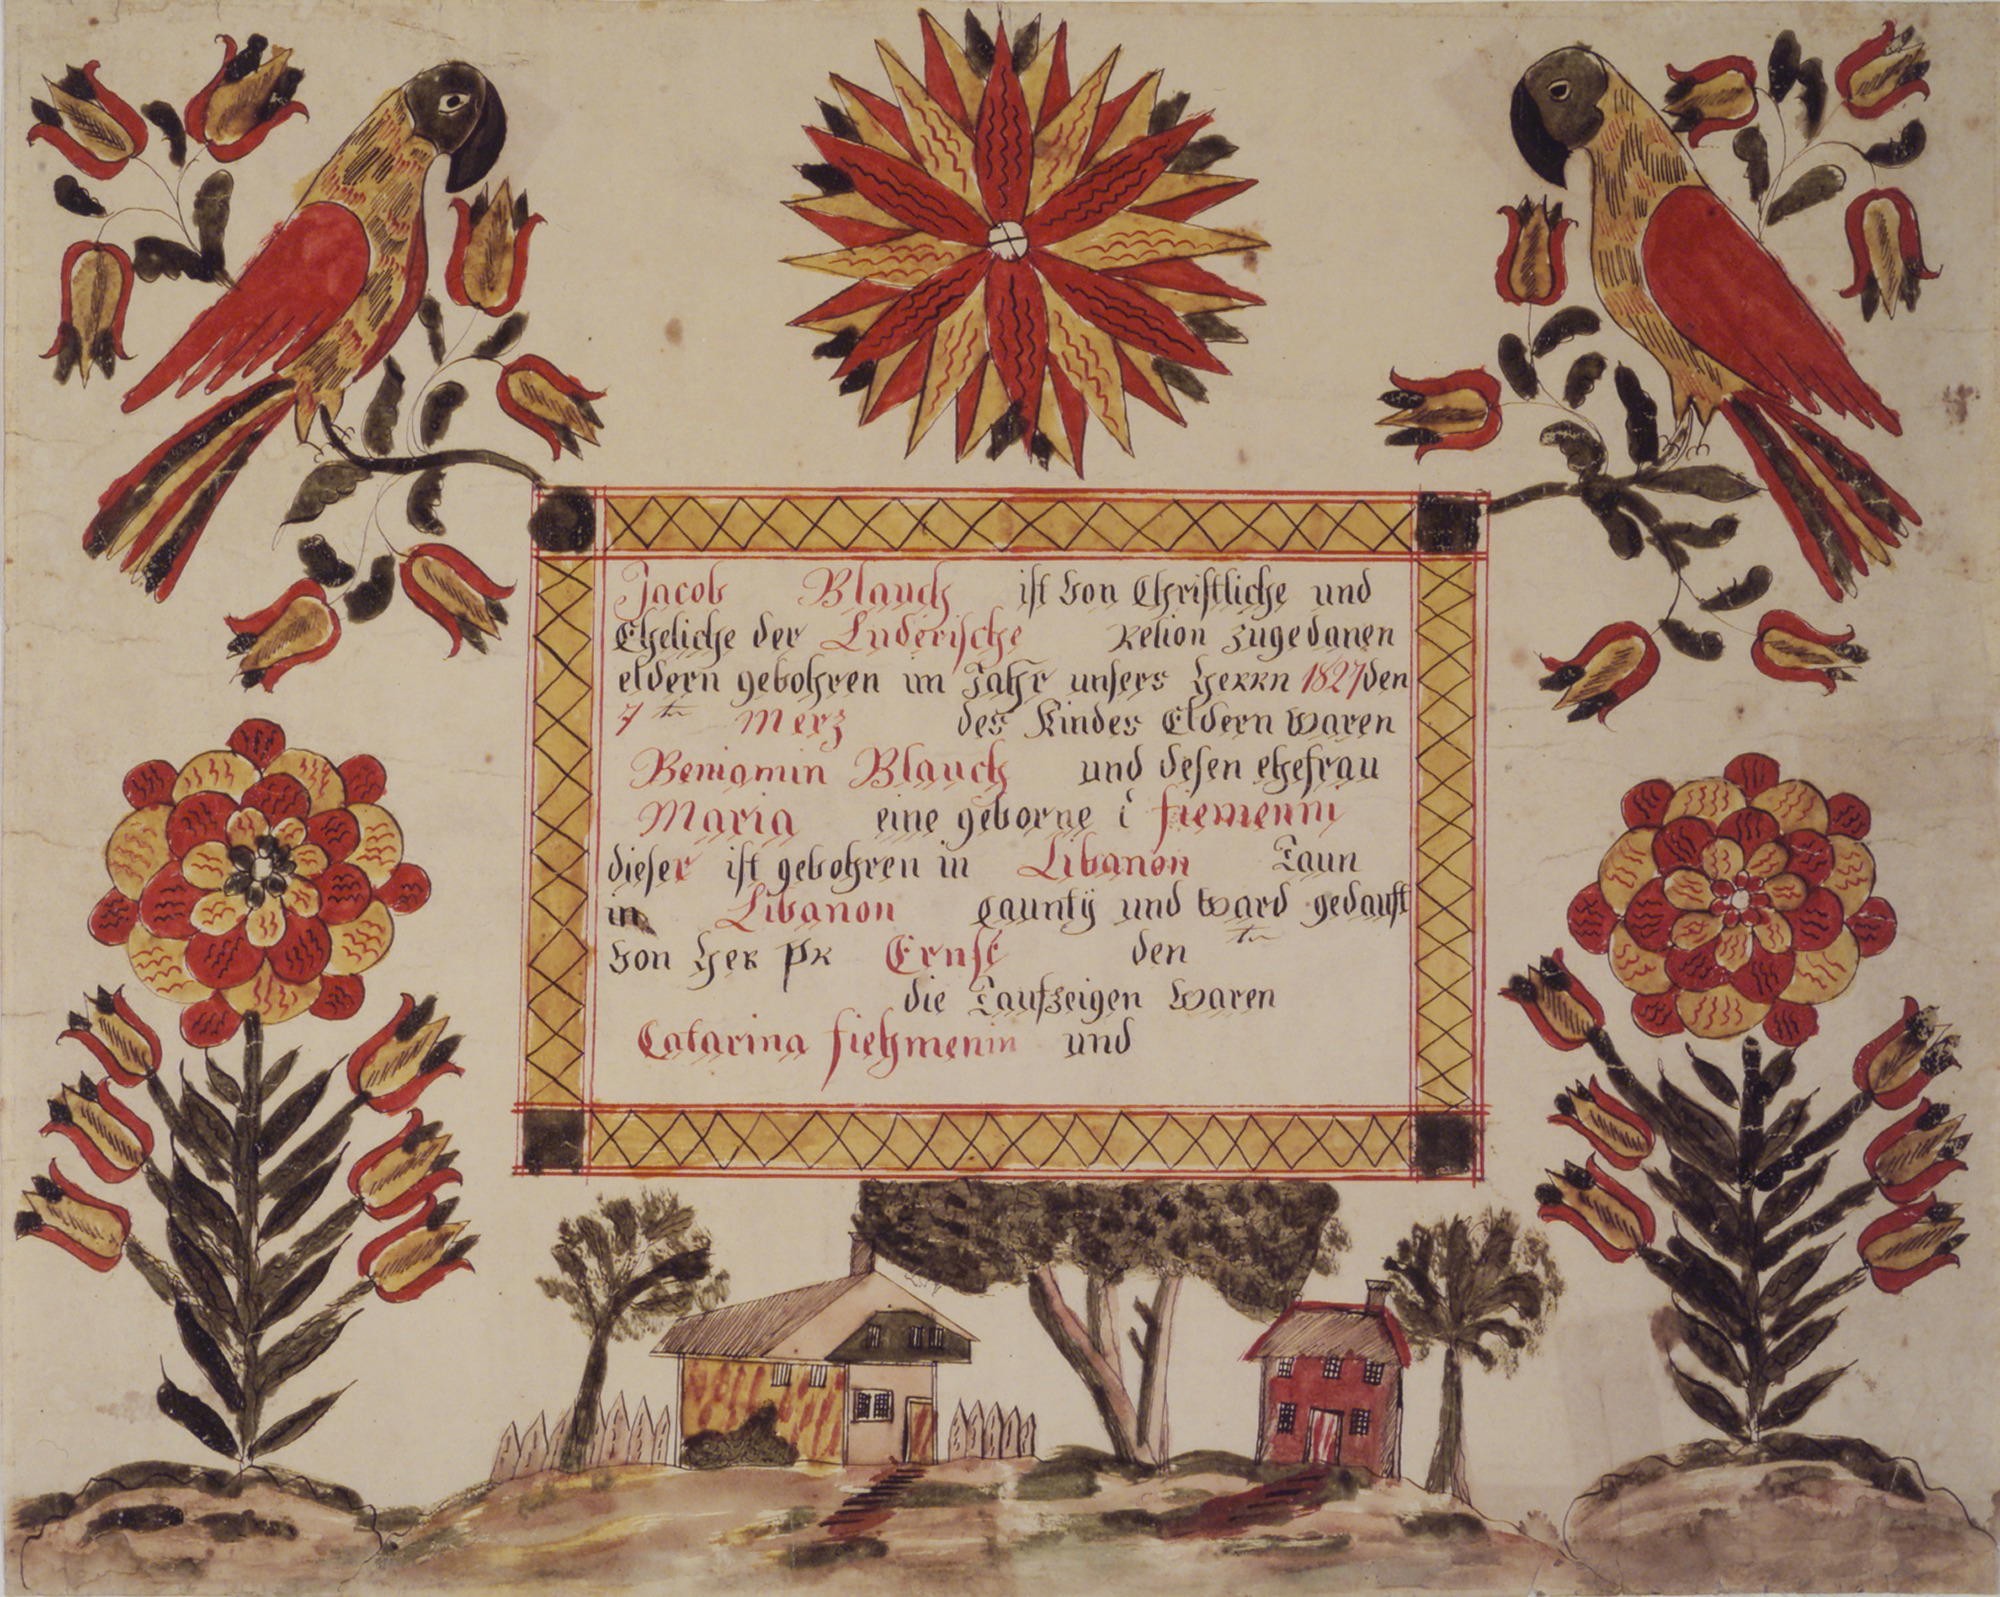 Jacob Blauch ist von Christliche und
Eheliche der Luderische Relion zugedanen
eldern gebohren im Jahr unsers Herrn 1827 den
7ten Merz des Kindes Eldern waren
Beniamin Blauch und desen ehefrau
Maria eine geborne
dieser ist gebohren in Libanon Taun
in Libanon caunty und ward gedauft
von Her Pr Ernst den ten
die Taufzeigen waren
Catarina und